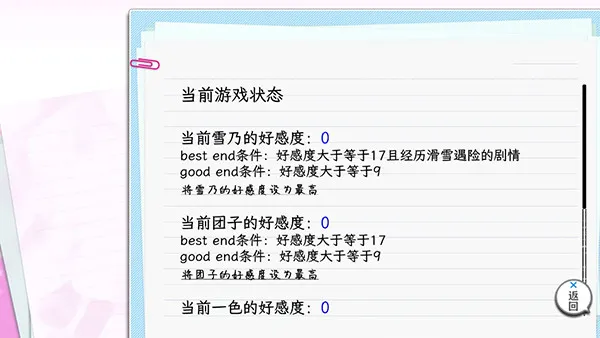 当前游戏状态
当前雪乃的好感度：0
best end条件：好感度大于等于17且经历滑雪遇险的剧情
good end条件：好感度大于等于9
将雪乃的好感度设为最高
当前团子的好感度：0
best end条件：好感度大于等于17
good end条件：好感度大于等于9
将团子的好感度设为最高
当前一色的好感度：0
返回